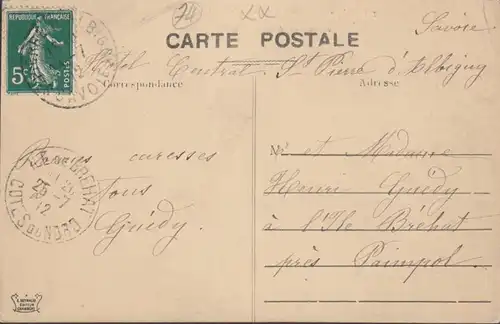 74
XX
Savoie
CARTE POSTALE
Hotel Central St Pierre d'Albigny
Correspondance
Adresse
REPUBLIQUE FRANÇAISE
5c
POSTES
SAVOIE
Bonnies caresses
à tous
Guédy
BREHAT
25
12
COTES DU NORD
Mr et Madame
Henri Guédy
à l'Ile Bréhat
près Paimpol